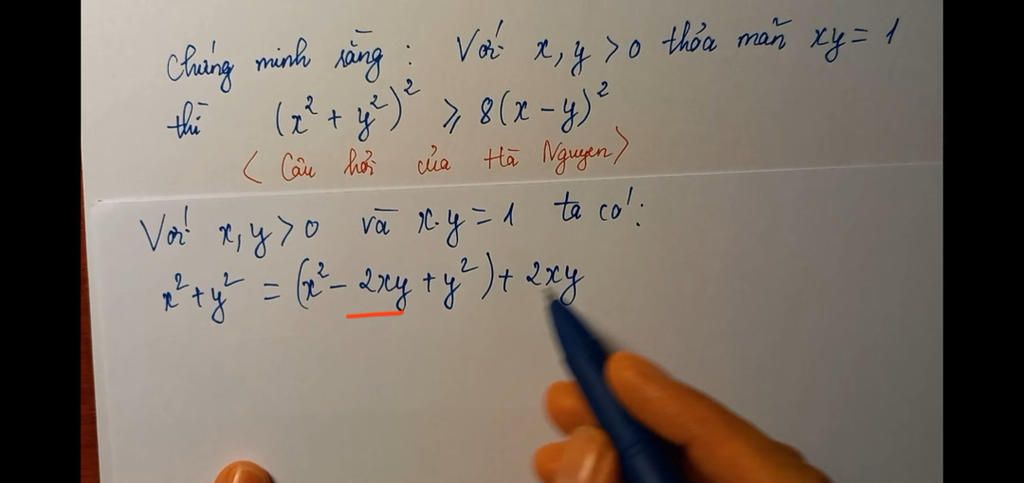 Chứng minh rằng: Với x, y > 0 thỏa mãn xy = 1
thì (x² + y²)² ⩾ 8(x - y)²
< Câu hỏi của Hà Nguyen >
Với x, y > 0 và x.y = 1 ta có:
x² + y² = (x² - 2xy + y²) + 2xy